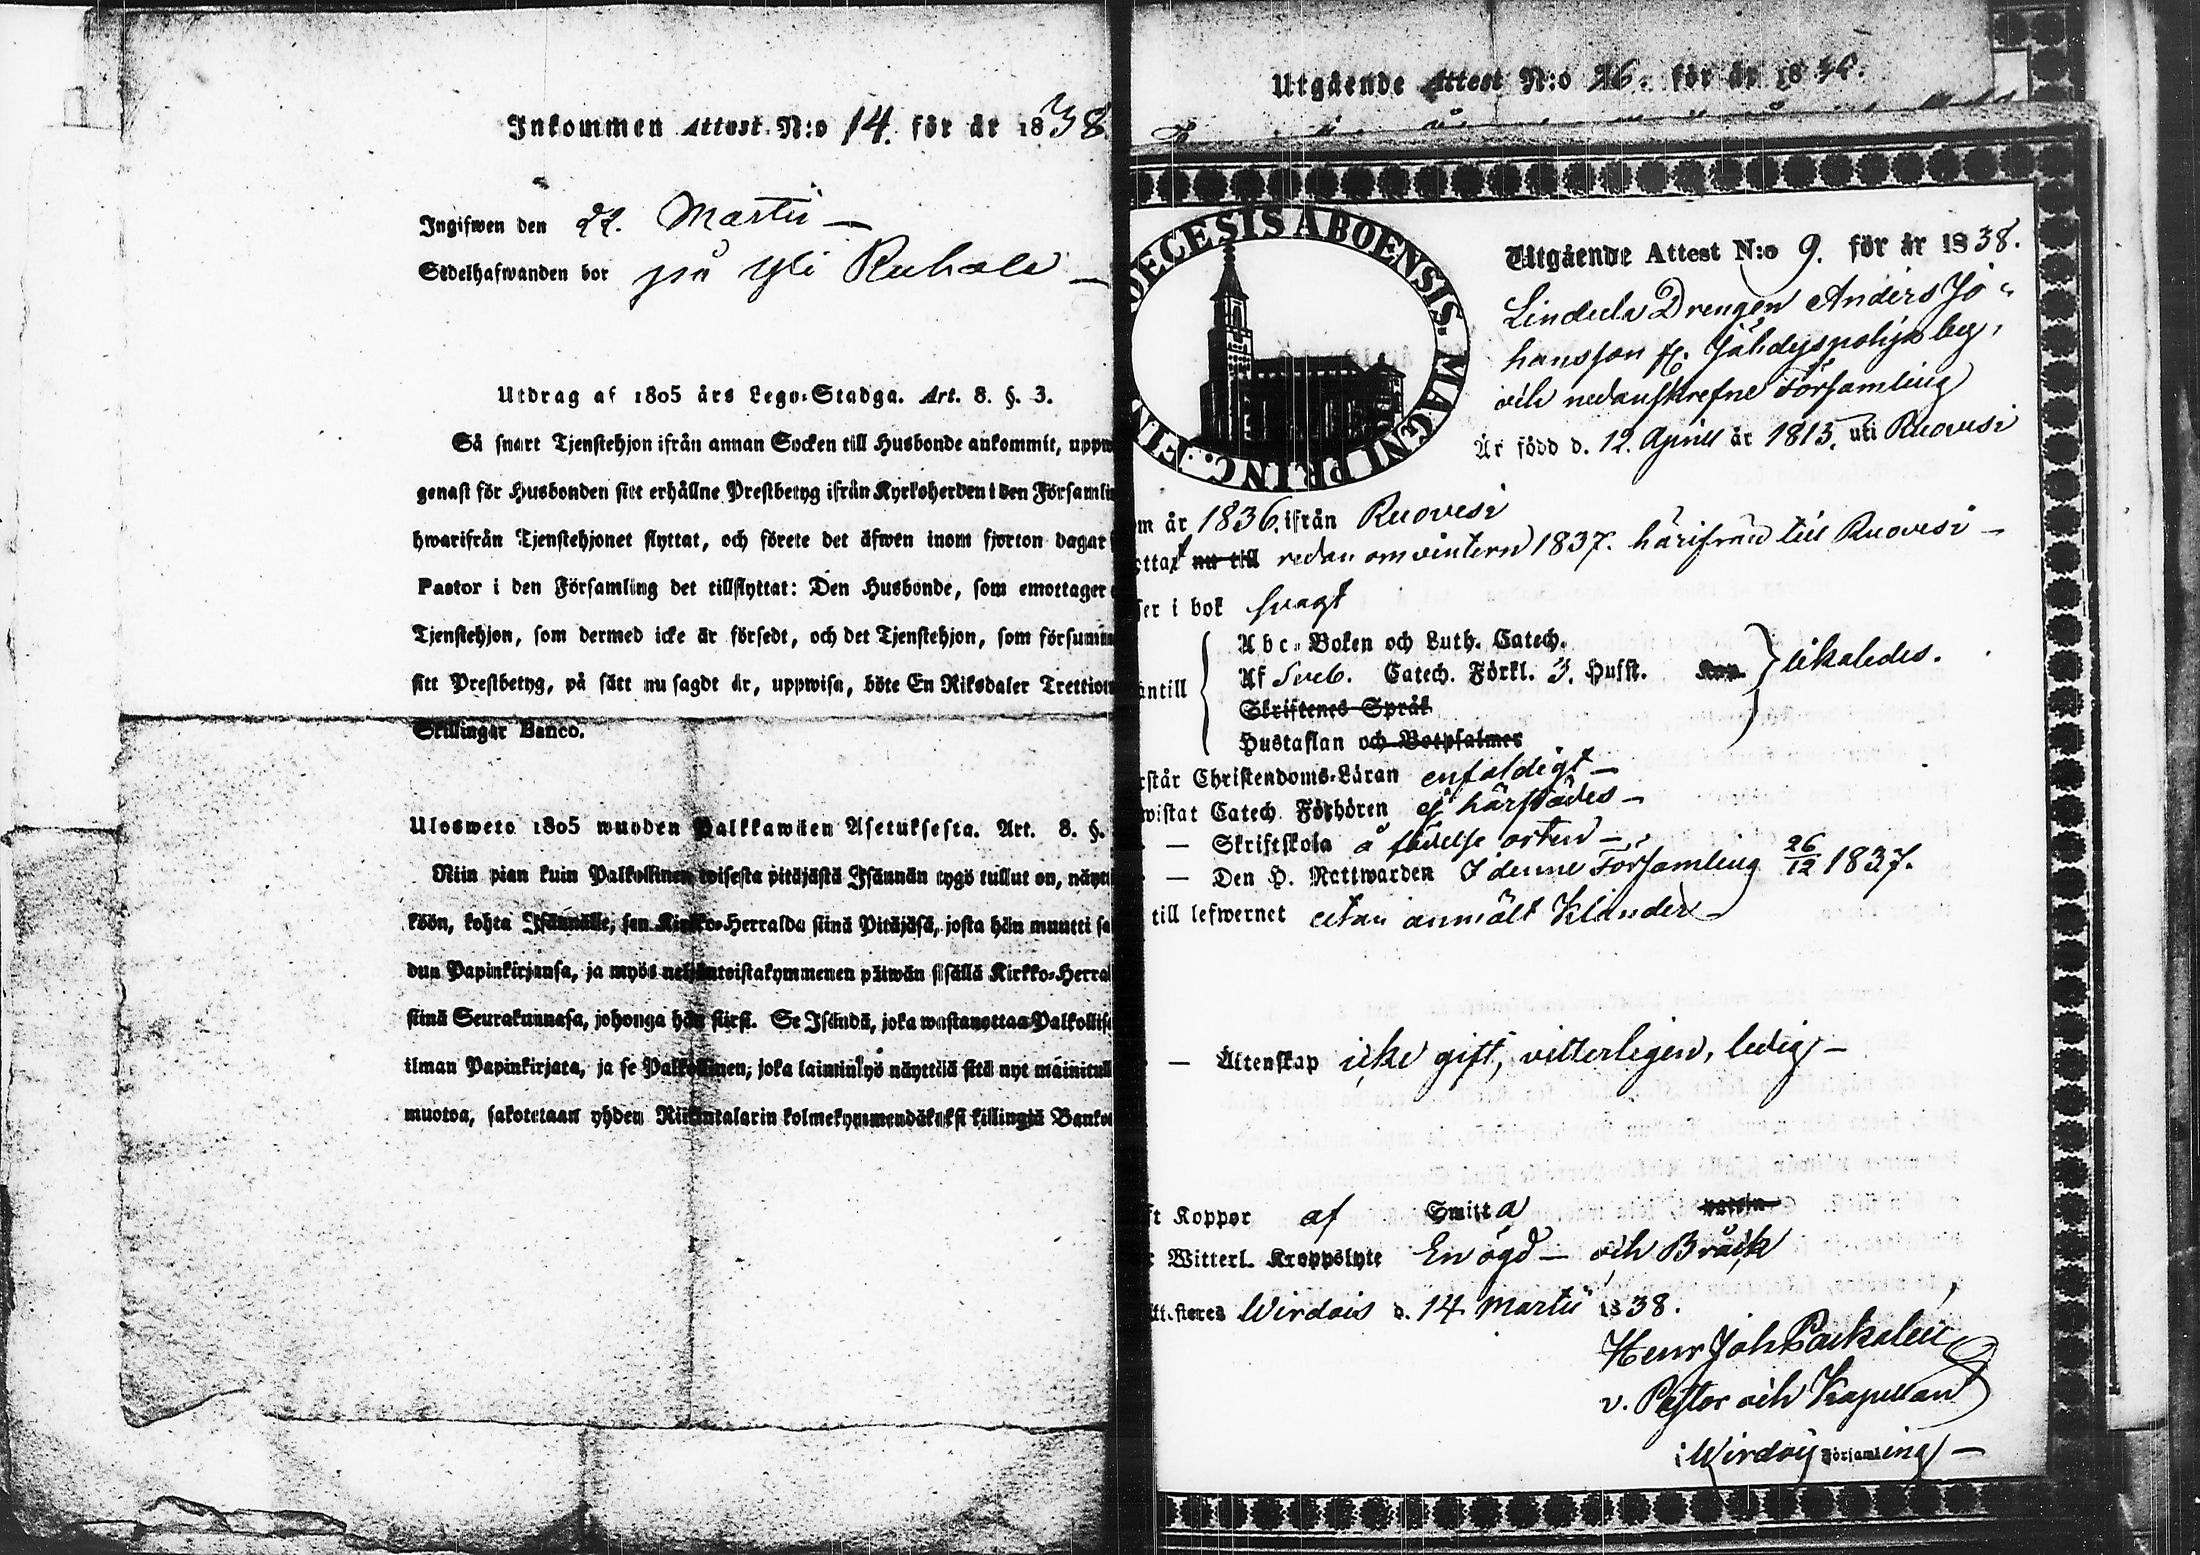 Inkommen Attest N:o 14. för år 1838
Ingifwen den 22. Martii —
Sedelhafwanden bor på Yli Ruhala —
Utdrag af 1805 års Lego-Stadga. Art. 8. §. 3.
Så snart Tjenstehjon ifrån annan Socken till Husbonde ankommit, uppw
genast för Husbonden sitt erhållne Prestbetyg ifrån Kyrkoherden i den Församli
hwarifrån Tjenstehjonet flyttat, och förete det äfwen inom fjorton dagar
Pastor i den Församling det tillflyttat: Den Husbonde, som emottager
Tjenstehjon, som dermed icke är försedt, och det Tjenstehjon, som försumm
sitt Prestbetyg, på sätt nu sagdt är, uppwisa, böte En Riksdaler Trettiot
Skillingar Banco.
Ulosweto 1805 wuoden Palkkawäen Asetuksesta. Art. 8. §.
Niin pian kuin Palkollinen toisesta pitäjästä Isännän tygö tullut on, näyt
köön, kohta Isännälle, sen Kirkko-Herralda siinä Pitäjäsä, josta hän muutti sa
dun Papinkirjansa, ja myös neljäntoistakymmenen päiwän sisällä Kirkko-Herra
siinä Seurakunnasa, johonga hän siirsi. Se Isändä, joka wastanottaa Palkollis
ilman Papinkirjata, ja se Palkollinen, joka laiminlyö näyttää sitä nyt mainitull
muotoa, sakotetaan yhden Riikintalarin kolmekymmendäkaksi killingiä Banko
Utgående Attest N:o 26. för år 18
DECESIS ABOENSIS. MAGNI PRINC. FIN
Utgående Attest N:o 9. för år 1838.
Lindula Drengen Anders Jo-
hansson fr. Jähdyspohja by,
och nedanskrefne Församling
Är född d. 12. April år 1815. uti Ruovesi
om år 1836. ifrån Ruovesi
ttat nu till redan om vintern 1837. härifrån till Ruovesi —
ser i bok svagt
antill Abc-Boken och Luth. Catech.
Af Sveb. Catech. Förkl. 3. Hufst. Kap. likaledes.
Skriftenes Språk
Hustaflan och Botpsalmer
rstår Christendoms-Läran enfaldigt —
wistat Catech Förhören ej härstädes —
— Skriftskola å födelse orten —
— Den H. Nattwarden I denne Församling 26/12 1837.
till lefwernet utan anmält klander
— Äktenskap icke gift, vitterligen, ledig —
ft Koppor af Smitta
r Witterl. Kroppslyte Enögd — och Bråck
Attesteras Wirdois d. 14 Martii 1838.
Henr Joh
v. Pastor och Kapellan
i Wirdois Församling —